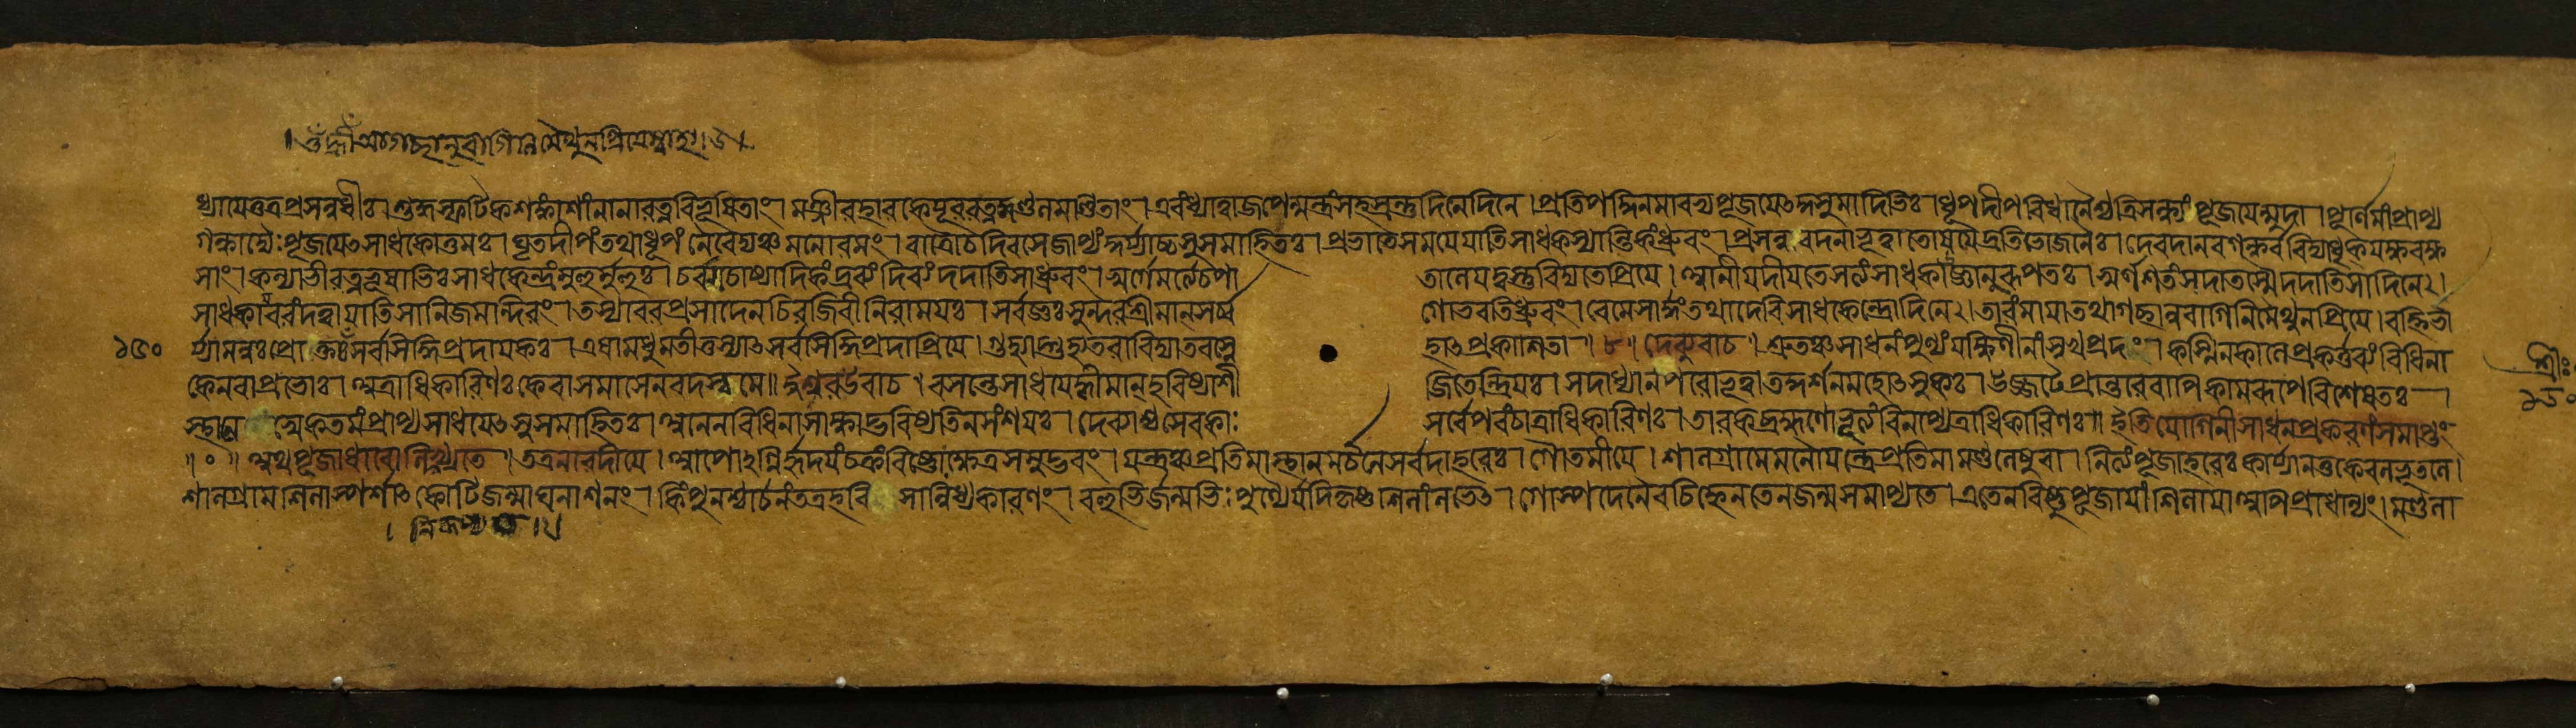 । ওঁ হ্রীঁ আগচ্ছানুরাগিনি মৈথুনপ্রিয়ে স্বাহা।
ধ্যায়েত্তত্রপ্রসন্নধীঃ। শুদ্ধস্ফটিকশঙ্কাশাংনানারত্নবিভূষিতাং। মঞ্জীরহারকেয়ূররত্নকুণ্ডলমণ্ডিতাং। এবংধ্যাত্বাজপেন্মন্ত্রংসহস্রন্তুদিনেদিনে। প্রতিপদ্দিনমারভ্যপূজয়েৎকুসুমাদিভিঃ। ধূপদীপবিধানৈশ্চত্রিসন্ধ্যংপূজয়েন্মুদা। পূর্ণিমাংপ্রাপ্য
গন্ধাদ্যৈঃপূজয়েৎসাধকোত্তমঃ। ঘৃতদীপংতথাধূপংনৈবেদ্যঞ্চমনোরমং। রাত্রৌচদিবসেজাপ্যংকুর্য্যাচ্চসুসমাহিতঃ। প্রভাতসময়েয়াতিসাধকস্যান্তিকংধ্রুবং। প্রসন্নবদনাভূত্বাতোষয়েদ্রতিভোজনৈঃ। দেবদানবগন্ধর্ববিদ্যাধৃক্যক্ষরক্ষ
সাং। কন্যাভীরত্নভূষাভিঃসাধকেন্দ্রংমুহুর্মুহুঃ। চর্ব্যচোষ্যাদিকংদ্রব্যংদিব্যংদদাতিসাধ্রুবং। স্বর্গেমর্ত্যেচপা তালেয়দ্বস্তুবিদ্যতেপ্রিয়ে। আনীয়দীয়তেসত্যংসাধকাজ্ঞানুরূপতঃ। স্বর্ণশতংসদাতস্মৈদদাতিসাদিনে২।
সাধকায়বরংদত্বায়াতিসানিজমন্দিরং। তস্যাবরপ্রসাদেনচিরজিবীনিরাময়ঃ। সর্বজ্ঞঃসুন্দরশ্রীমান্সর্ব্ব গোভবতিধ্রুবং। রেমেসার্দ্ধংতথাদেবিসাধকেন্দ্রোদিনে২। তারংমায়াতথাগচ্ছানুরাগিনিমৈথুনপ্রিয়ে। বহ্নিভা
র্য্যামনুঃপ্রোক্তঃসর্বসিদ্ধিপ্রদায়কঃ। এষামধুমতীতুস্যাৎসর্বসিদ্ধিপ্রদাপ্রিয়ে। গুহ্যাদ্গুহ্যতরাবিদ্যাতবস্নে হাৎপ্রকাশিতা॥ ৮॥ দেব্যুবাচ। শ্রুতঞ্চসাধনংপুণ্যংযক্ষিণীনাংসুখপ্রদং। কস্মিন্কালেপ্রকর্তব্যংবিধিনা
কেনবাপ্রভোঃ। অত্রাধিকারিণঃকেবাসমাসেনবদস্বমে॥ ঈশ্বরউবাচ। বসন্তেসাধয়েদ্ধীমান্হবিষ্যাশী জিতেন্দ্রিয়ঃ। সদাধ্যানপরোভূত্বাতদ্দর্শনমহোৎসুকঃ। উজ্জটেপ্রান্তরেবাপিকামরূপেবিশেষতঃ।
স্থানেষ্বেকতমংপ্রাপ্যসাধয়েৎসুসমাহিতঃ। অনেনবিধিনাসাক্ষাদ্ভবিষ্যতিনসংশয়ঃ। দেব্যাশ্চসেবকাঃ সর্বেপরংচাত্রাধিকারিণঃ। তারকব্রহ্মণোভৃত্যংবিনাপ্যত্রাধিকারিণঃ॥ ইতিয়োগিনীসাধনপ্রকরণংসমাপ্তং
॥০॥ অথপূজাধারোনিরূপ্যতে। তত্রনারদীয়ে। আপোऽগ্নির্হৃদয়ংচক্রংবিষ্ণোঃক্ষেত্রসমুদ্ভবং। যন্ত্রঞ্চপ্রতিমাস্থানমর্চনেসর্বদাহরেঃ। গৌতমীয়ে। শালগ্রামেমনৌয়ন্ত্রেপ্রতিমামণ্ডলেষুবা। নিত্যংপূজাহরেঃকার্য্যানতুকেবলভূতলে।
শালগ্রামশিলাস্পর্শাৎকোটিজন্মাঘনাশনং। কিংপুনশ্চার্চনংতত্রহরিসান্নিধ্যকারণং। বহুভির্জন্মভিঃপুণ্যৈর্যদিকৃষ্ণশিলাংলভেৎ। গোস্পদেনৈবচিহ্নেনতেনজন্মসমাপ্যতে। এতেনবিষ্ণুপূজায়াংশিলায়াআপিপ্রাধান্যং। মণ্ডলা
১৫০
শ্রীঃ